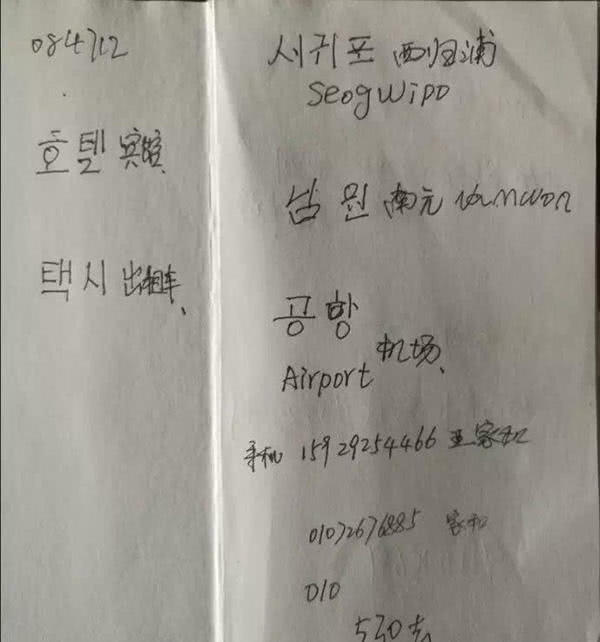 084712
호텔 宾馆
택시 出租车、
서귀포 西归浦
Seogwipo
남원 南元 Namwon
공항
Airport 机场、
手机 15929254466 王家和
01072676885 家和
010
530